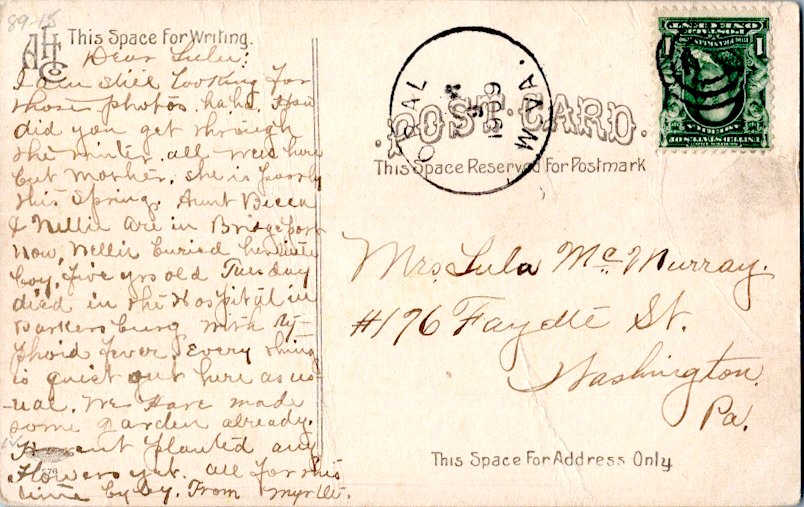 89-15
This Space For Writing.
Dear Lulu:
I am still looking for
those photos, ha ha. How
did you get through
the winter. all well here
but Mother, she is poorly
this Spring. Aunt
& Nellie are in Bridgeport
now, Nellie buried her little
boy, five yrs old Tuesday
died in the Hospital in
Parkersburg with Ty-
phoid fever. Every thing
is quiet out here as us-
-ual. We have made
some garden already.
Havent planted any
flowers yet. all for this
time by by. From Myrtle.
576
OPAL
1909
W.VA.
POST CARD.
This Space Reserved For Postmark
Mrs. Lula McMurray.
#176 Fayette St.
Washington,
Pa.
This Space For Address Only
1
1